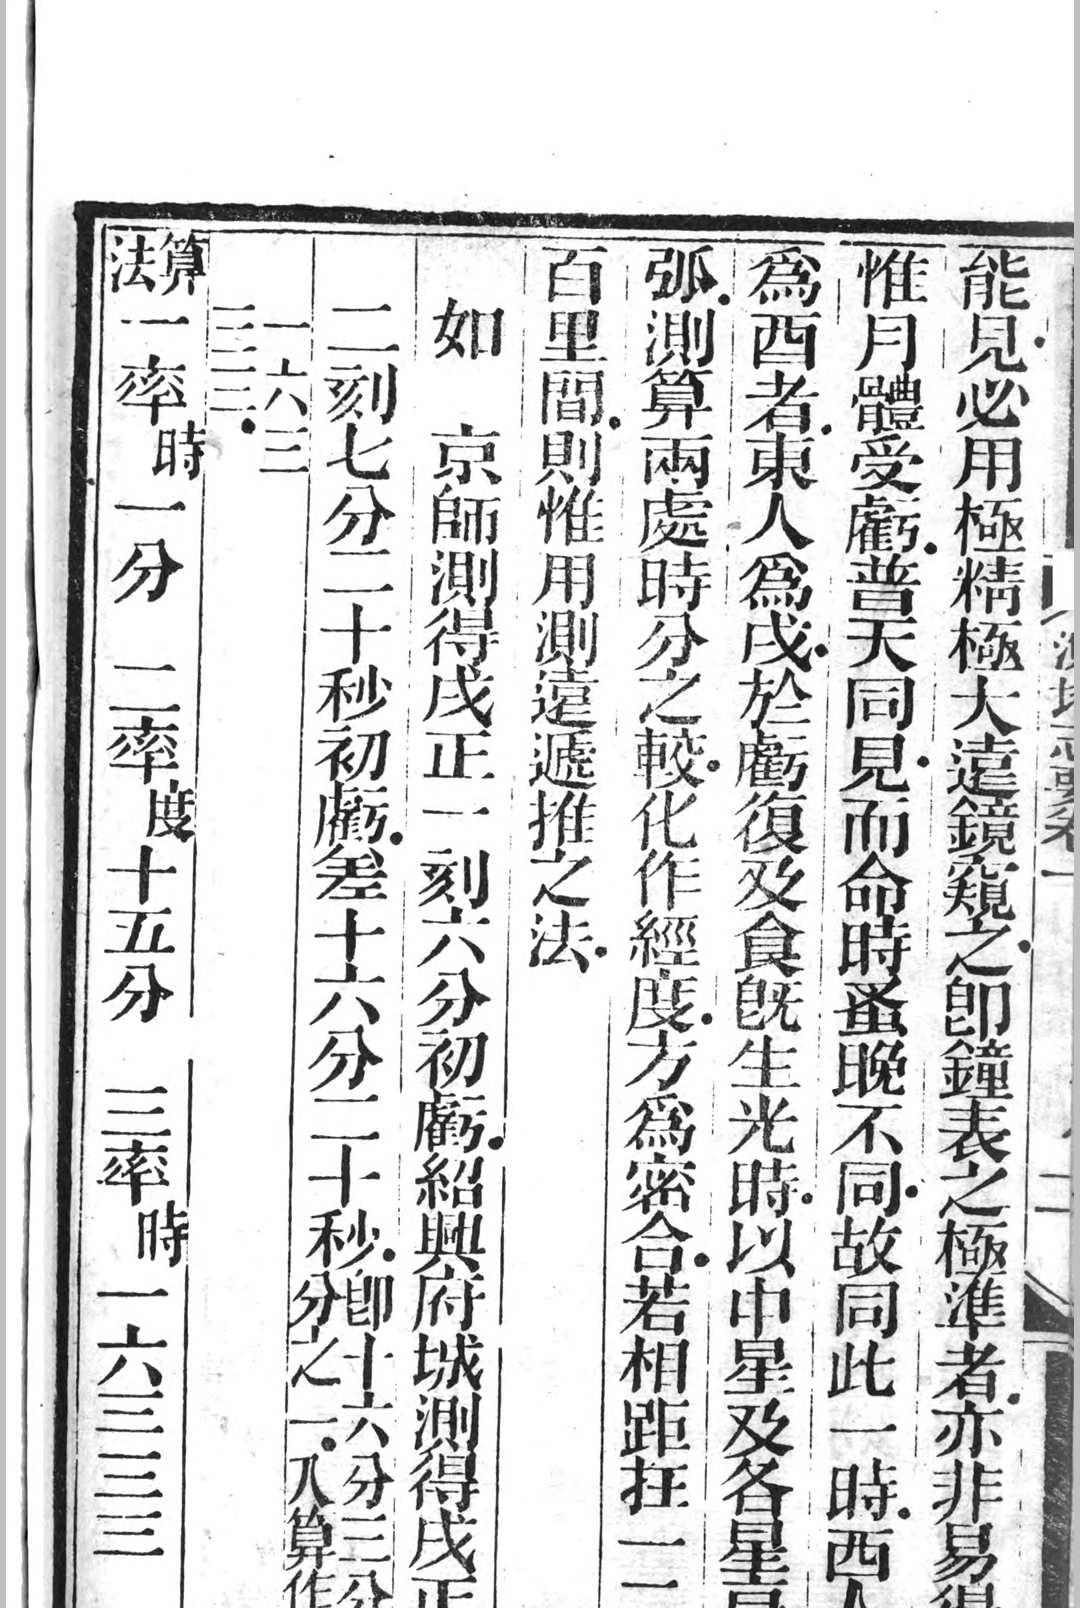 能見必用極精極大遠鏡窺之卽鐘表之極準者亦非易
惟月體受虧普天同見而命時蚤晚不同故同此一時西人
爲酉者東人爲戌於虧復及食旣生光時以中星及各星
弧測算兩處時分之較化作經度方爲密合若相距在一二
百里間則惟用測遠遞推之法
如 京師測得戌正一刻六分初虧紹興府城測得戌正
二刻七分二十秒初虧差十六分二十秒卽十六分三分
分之一入算作
一六三
三三三
算法 一率時一分 二率度十五分 三率時一六三三三